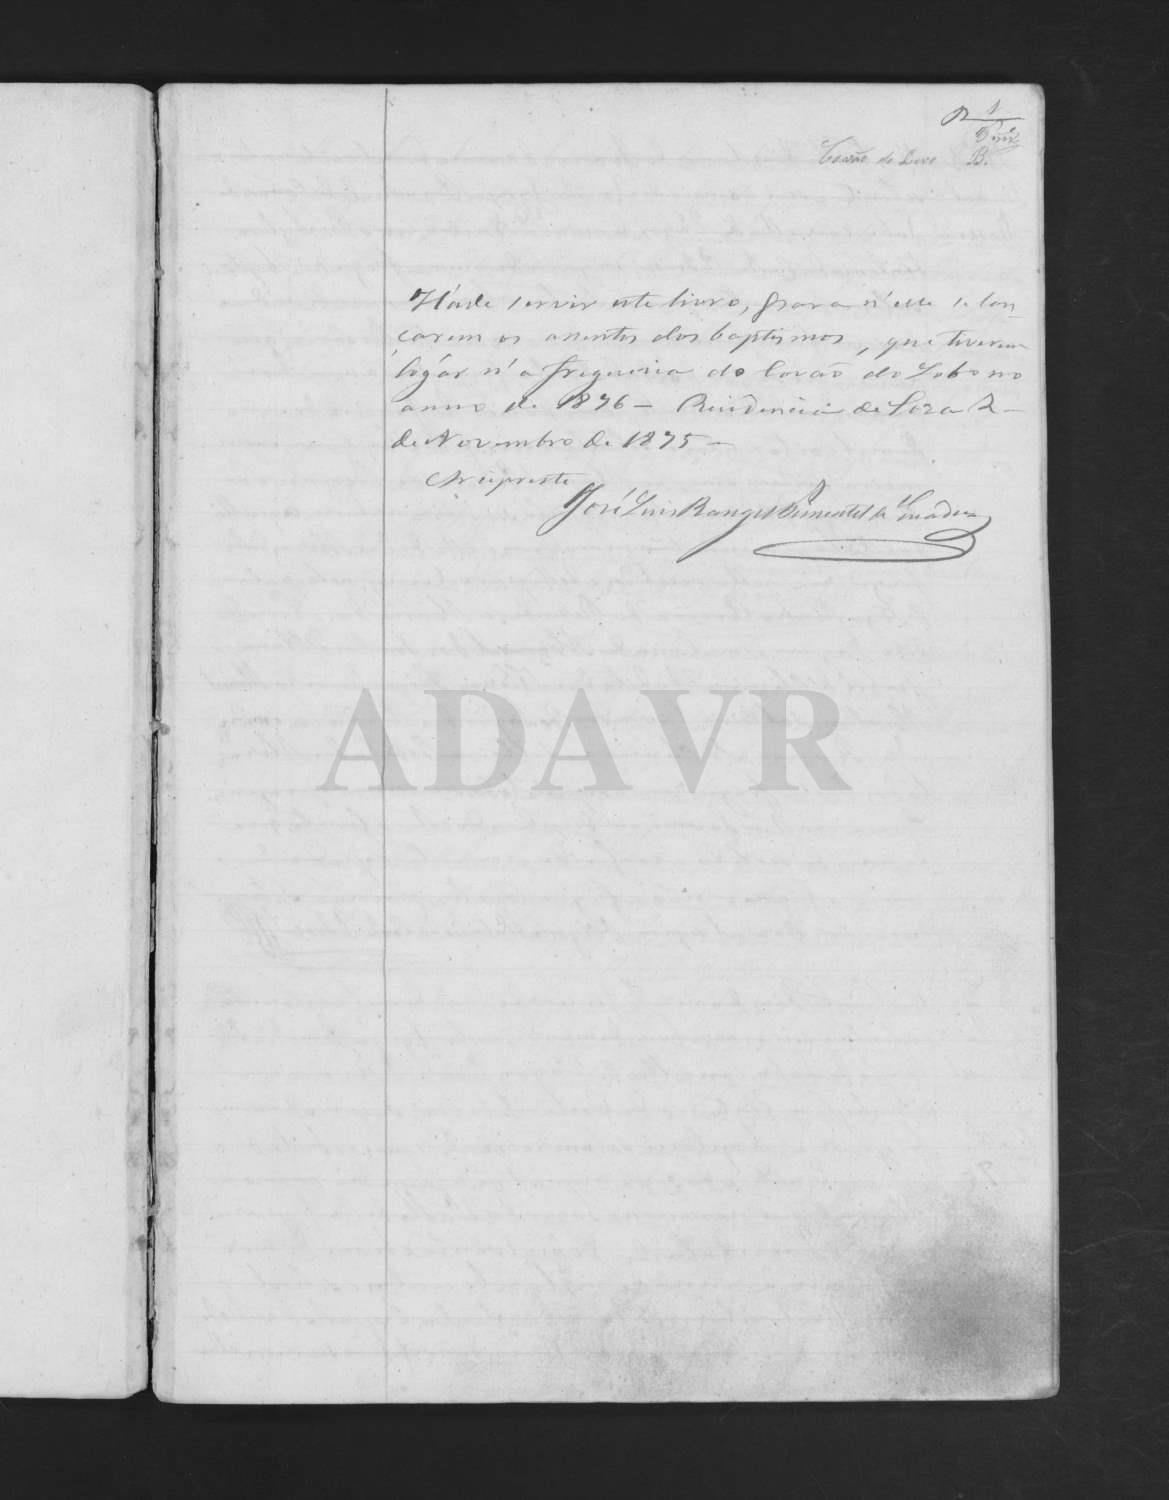 1
B.
Covão do Lobo
Háde servir este livro, para n'elle se lan-
çarem os assentos dos baptismos, que tiverem
logár n'a freguezia do Covão do Lobo no
anno de 1876 — Residencia de Soza 2
de Novembro de 1875 —
Arcipreste
José Luis Rangel Pimentel de
ADAVR